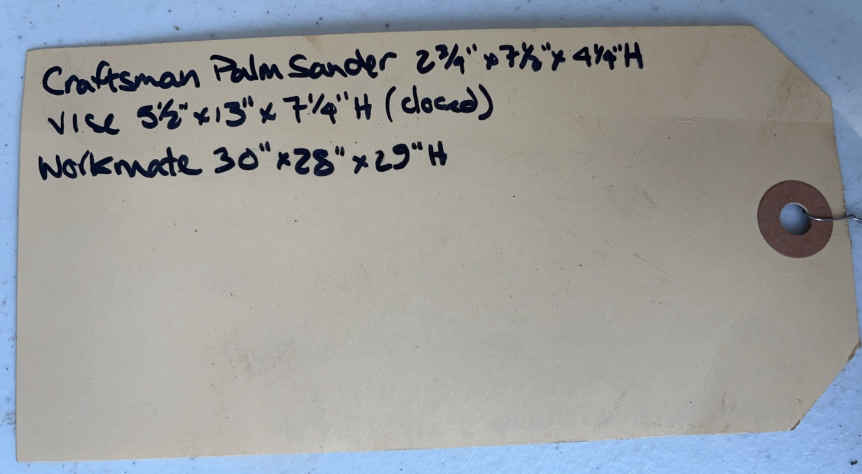 Craftsman Palm Sander 2 3/4" x 7 1/2" x 4 1/4" H
Vise 5 1/2" x 13" x 7 1/4" H (closed)
Workmate 30" x 28" x 29" H